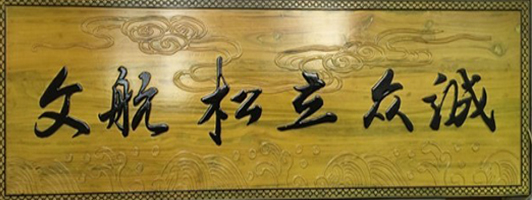 文航松立众诚